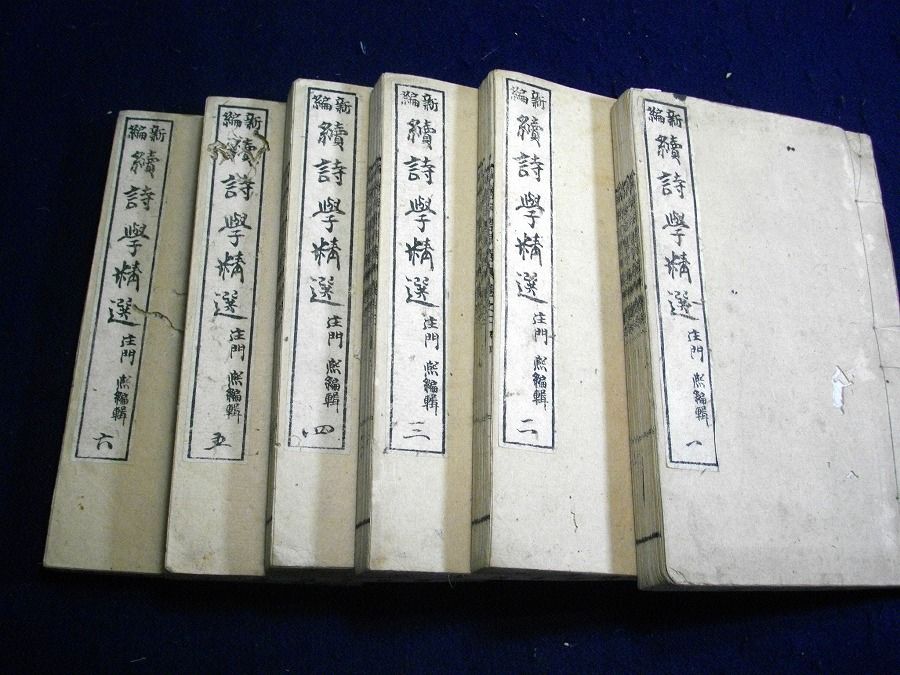 新編
續詩學精選
注門 熙編輯
一
新編
續詩學精選
注門 熙編輯
二
新編
續詩學精選
注門 熙編輯
三
新編
續詩學精選
注門 熙編輯
四
新編
續詩學精選
注門 熙編輯
五
新編
續詩學精選
注門 熙編輯
六